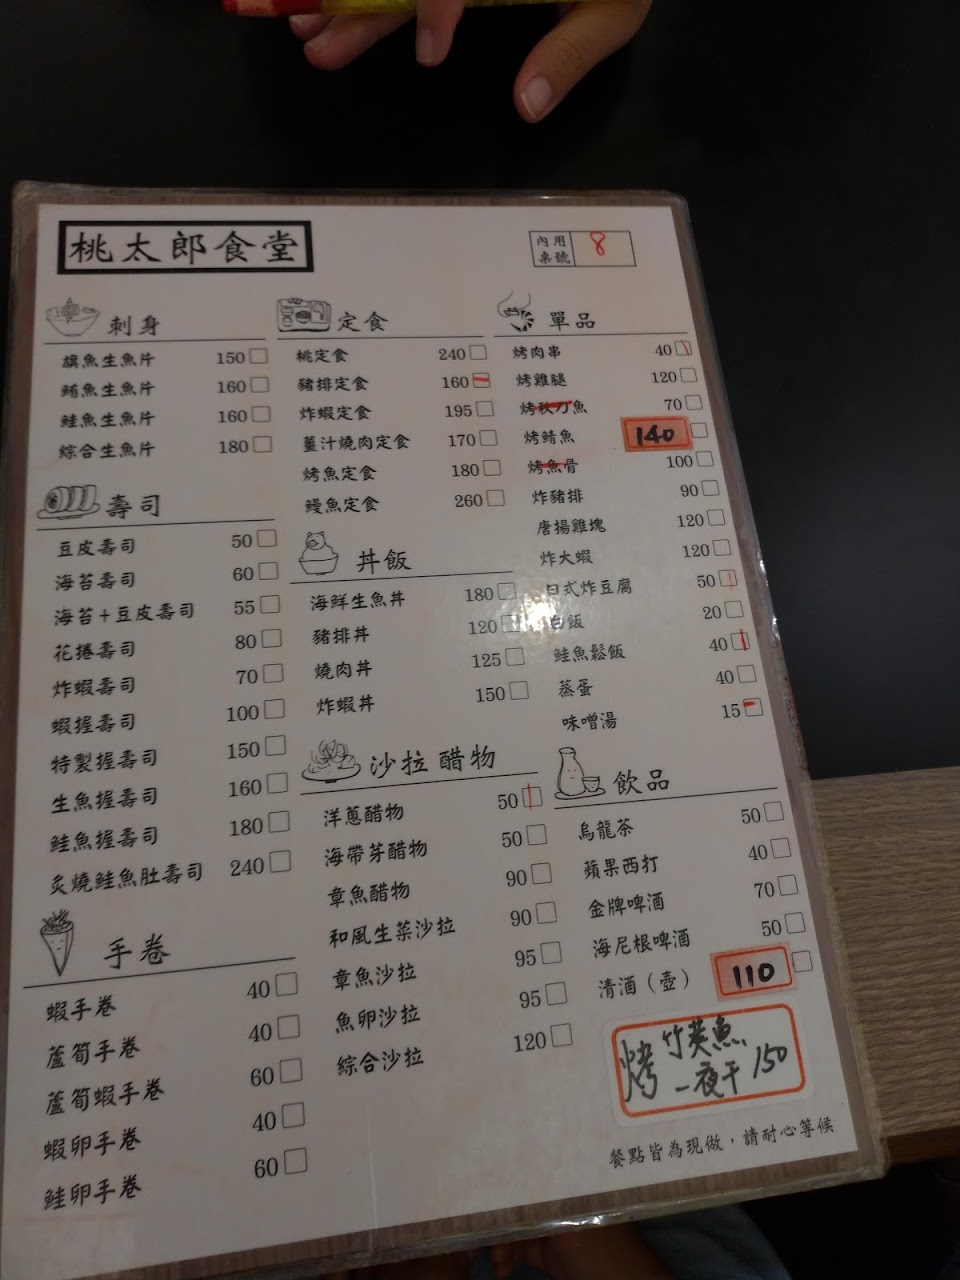 桃太郎食堂
內用
桌號
8
刺身
旗魚生魚片 150
鮪魚生魚片 160
鮭魚生魚片 160
綜合生魚片 180
壽司
豆皮壽司 50
海苔壽司 60
海苔+豆皮壽司 55
花捲壽司 80
炸蝦壽司 70
蝦握壽司 100
特製握壽司 150
生魚握壽司 160
鮭魚握壽司 180
炙燒鮭魚肚壽司 240
手卷
蝦手卷 40
蘆筍手卷 40
蘆筍蝦手卷 60
蝦卵手卷 40
鮭卵手卷 60
定食
桃定食 240
豬排定食 160
炸蝦定食 195
薑汁燒肉定食 170
烤魚定食 180
鰻魚定食 260
丼飯
海鮮生魚丼 180
豬排丼 120
燒肉丼 125
炸蝦丼 150
沙拉醋物
洋蔥醋物 50
海帶芽醋物 50
章魚醋物 90
和風生菜沙拉 90
章魚沙拉 95
魚卵沙拉 95
綜合沙拉 120
單品
烤肉串 40
烤雞腿 120
烤秋刀魚 70
烤鯖魚 140
烤魚骨 100
炸豬排 90
唐揚雞塊 120
炸大蝦 120
日式炸豆腐 50
白飯 20
鮭魚鬆飯 40
蒸蛋 40
味噌湯 15
飲品
烏龍茶 50
蘋果西打 40
金牌啤酒 70
海尼根啤酒 50
清酒(壺) 110
烤竹筴魚
一夜干 150
餐點皆為現做，請耐心等候